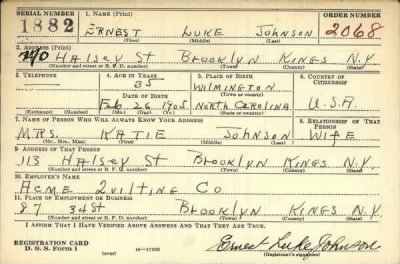 SERIAL NUMBER 1. NAME (Print) ORDER NUMBER
1882 ERNEST LUKE JOHNSON 2068
(First) (Middle) (Last)
2. ADDRESS (Print)
HALSEY ST BROOKLYN KINGS N.Y.
(Number and street or R. F. D. number) (Town) (County) (State)
3. TELEPHONE 4. AGE IN YEARS 5. PLACE OF BIRTH 6. COUNTRY OF CITIZENSHIP
— 35 WILMINGTON
DATE OF BIRTH (Town or county)
Feb. 26 1905 NORTH CAROLINA U.S.A.
(Exchange) (Number) (Mo.) (Day) (Yr.) (State or country)
7. NAME OF PERSON WHO WILL ALWAYS KNOW YOUR ADDRESS 8. RELATIONSHIP OF THAT PERSON
MRS. KATIE JOHNSON WIFE
(Mr., Mrs., Miss) (First) (Middle) (Last)
9. ADDRESS OF THAT PERSON
113 HALSEY ST BROOKLYN KINGS N.Y.
(Number and street or R. F. D. number) (Town) (County) (State)
10. EMPLOYER'S NAME
ACME QUILTING CO
11. PLACE OF EMPLOYMENT OR BUSINESS
87 34 St BROOKLYN KINGS N.Y.
(Number and street or R. F. D. number) (Town) (County) (State)
I AFFIRM THAT I HAVE VERIFIED ABOVE ANSWERS AND THAT THEY ARE TRUE.
REGISTRATION CARD
D. S. S. Form 1 (over) Ernest Luke Johnson
(Registrant's signature)